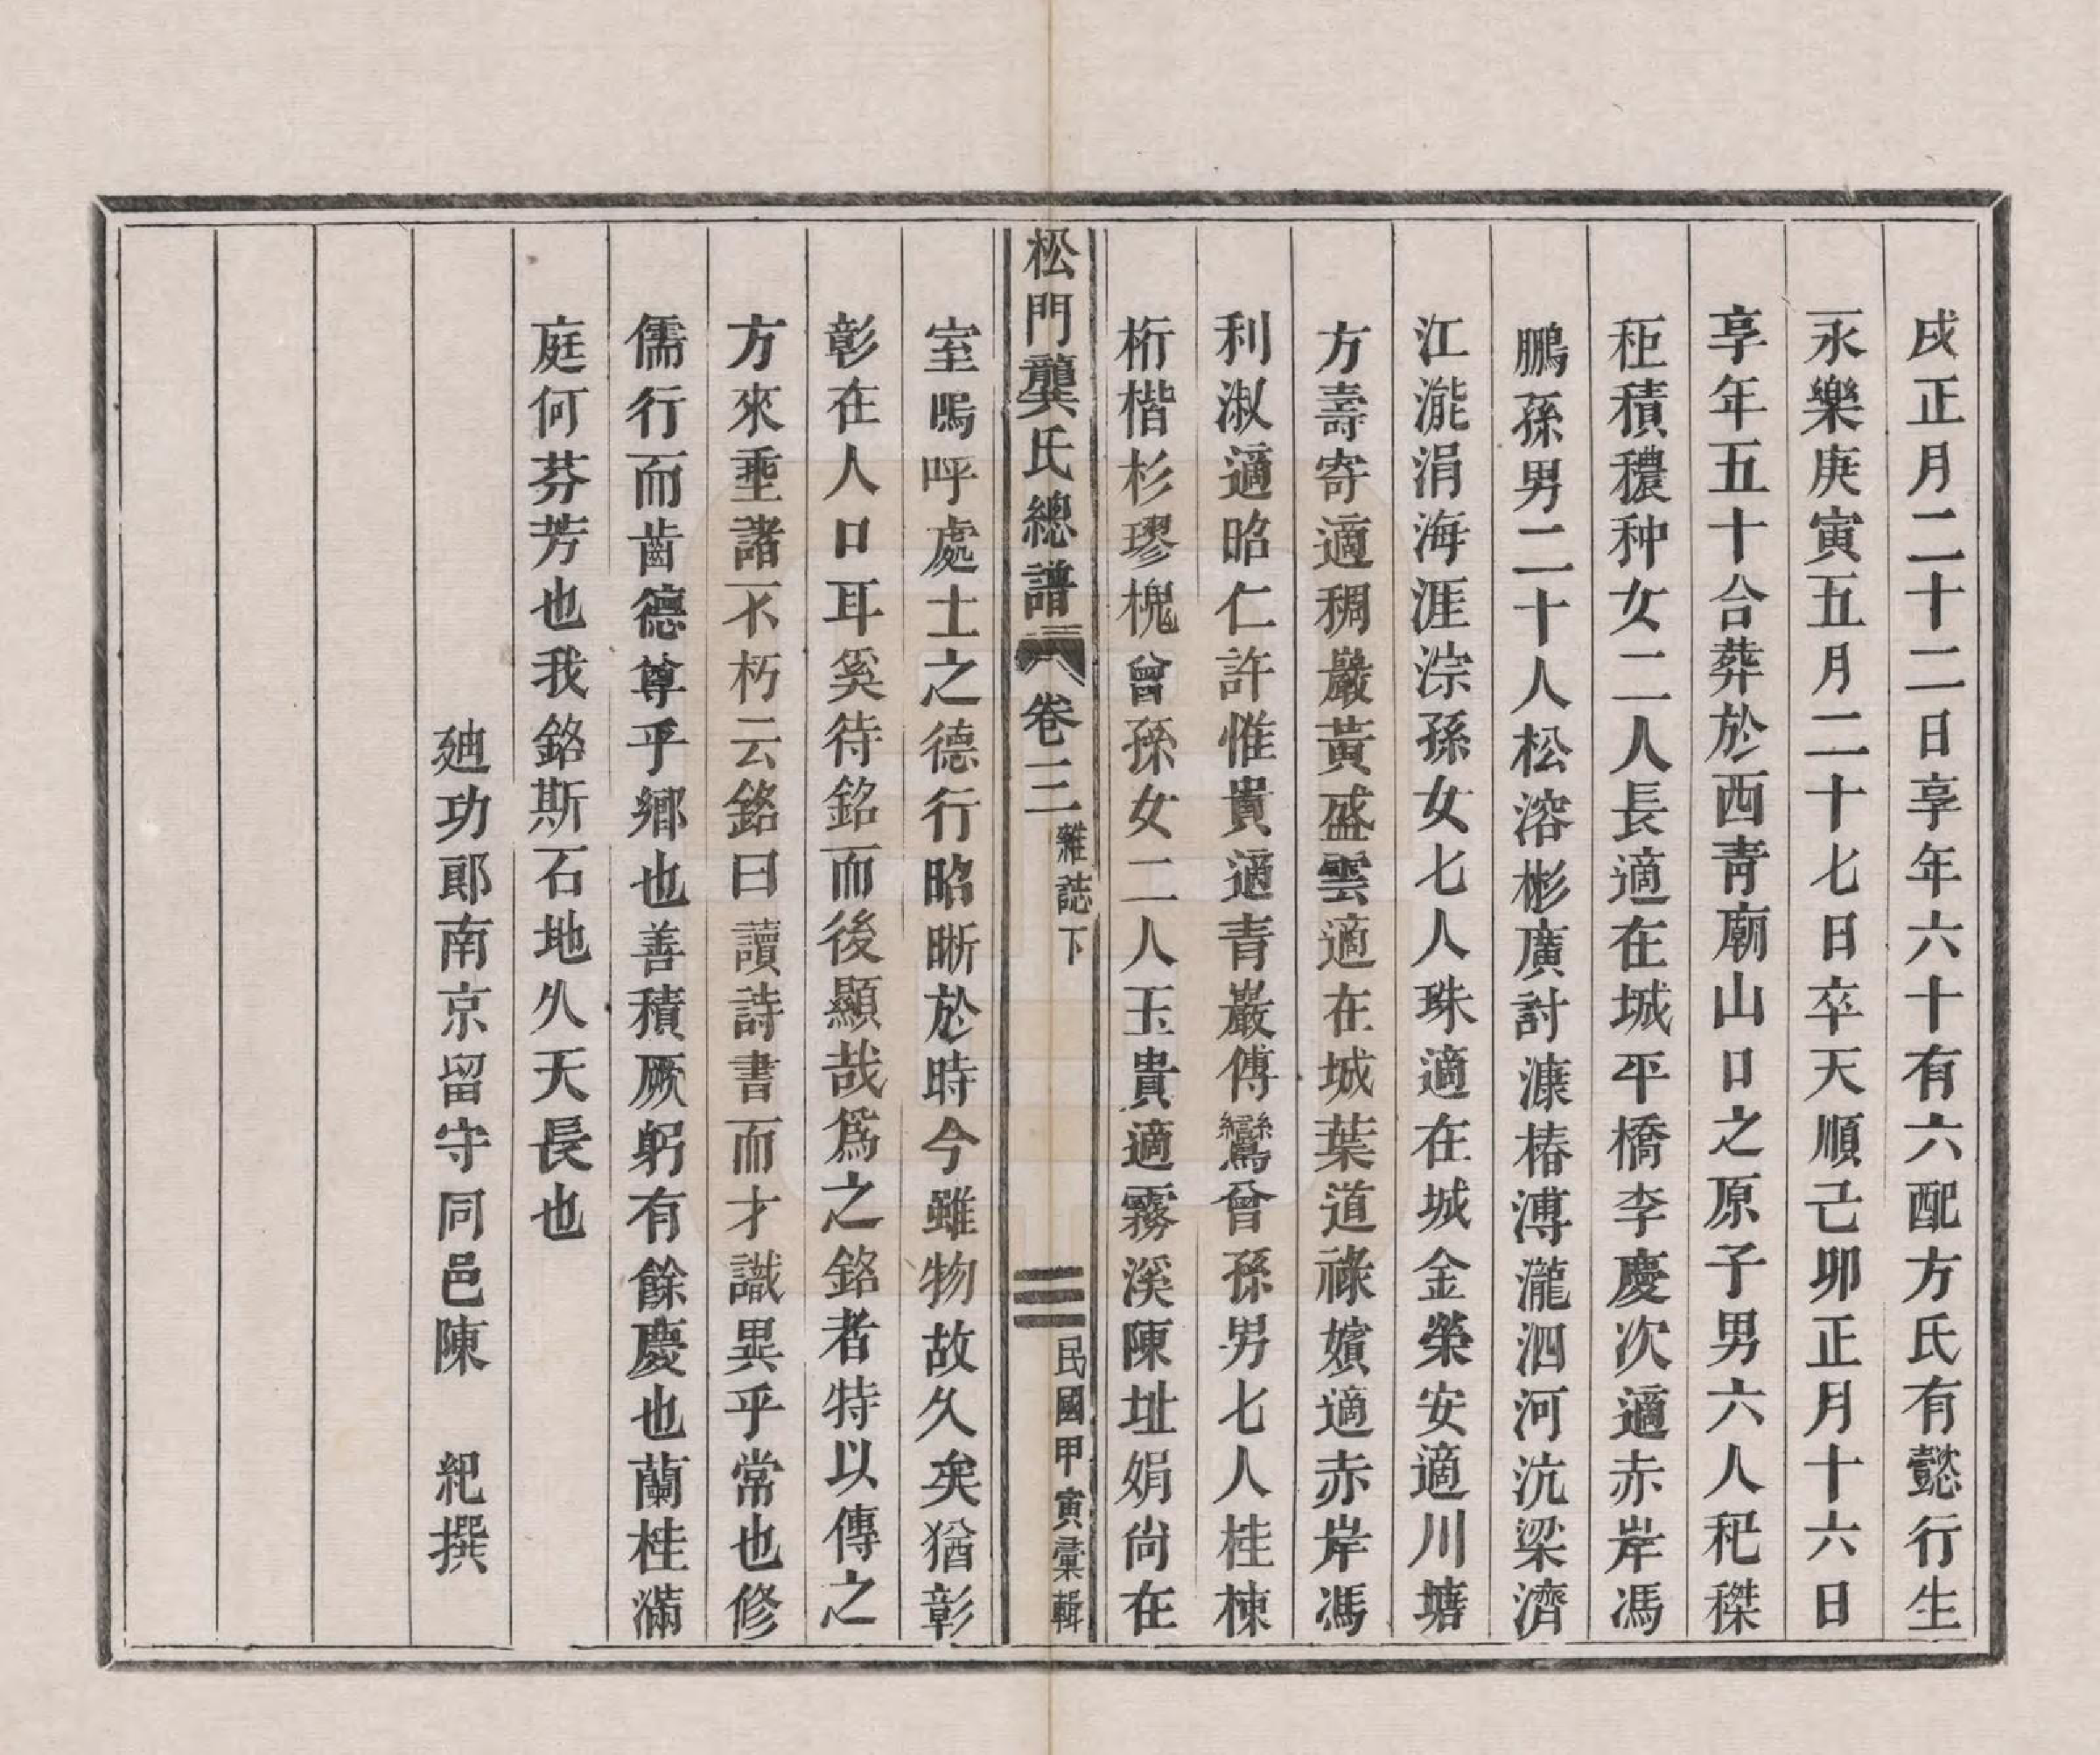 戌正月二十二日享年六十有六配方氏有懿行生
永樂庚寅五月二十七日卒天順己卯正月十六日
享年五十合葬於西青廟山口之原子男六人秬穄
秬積穠种女二人長適在城平橋李慶次適赤岸馮
鵬孫男二十人松溶彬廣討濂椿溥瀧泗河沆梁濟
江瀧涓海涯淙孫女七人珠適在城金榮安適川塘
方壽寄適稠巖黃盛雲適在城葉道祿嬪適赤岸馮
利淑適昭仁許惟貴適青巖傅鸞曾孫男七人桂棟
桁楷杉璆槐曾孫女二人玉貴適霧溪陳址娟尙在
松門龔氏總譜 卷三 雜誌下 三 民國甲寅彙輯
室嗚呼處士之德行昭晰於時今雖物故久矣猶彰
彰在人口耳奚待銘而後顯哉爲之銘者特以傳之
方來垂諸不朽云銘曰讀詩書而才識異乎常也修
儒行而齒德尊乎鄉也善積厥躬有餘慶也蘭桂滿
庭何芬芳也我銘斯石地久天長也
廸功郞南京留守同邑陳 紀撰